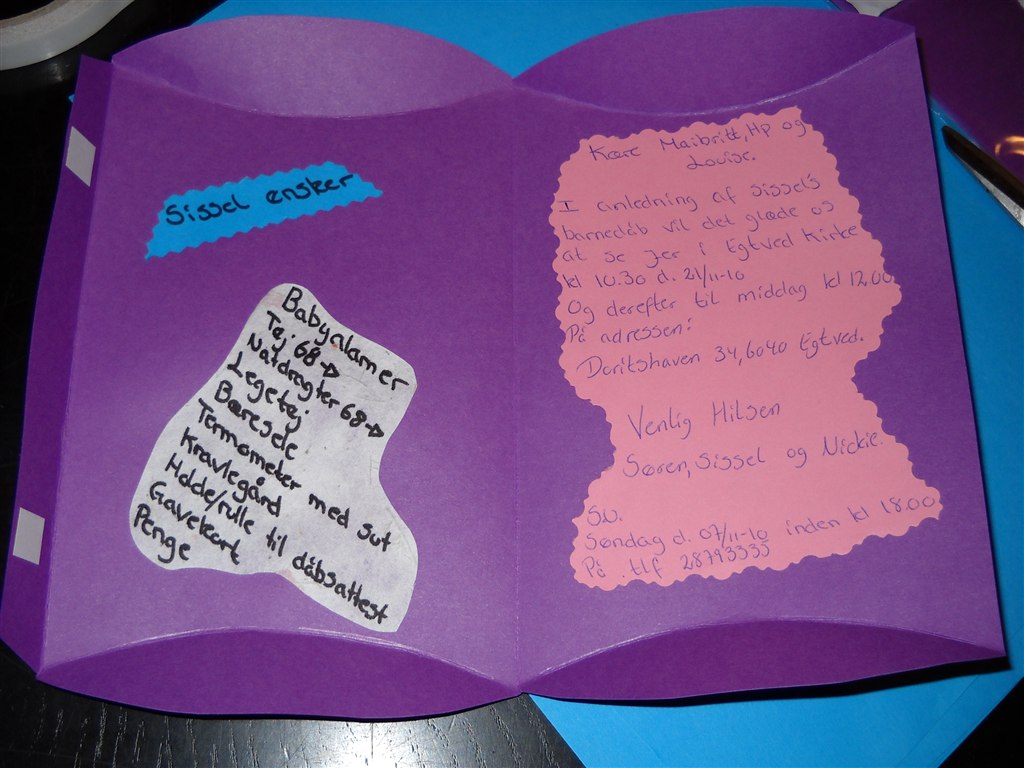 Sissel ønsker
Babyalamer
Tøj 68→
Natdragter 68→
Legetøj
Bæresele
Termometer med sut
Kravlegård
Holde/rulle til dåbsattest
Gavekort
Penge
Kære Maibritt, Hp og
Louise.
I anledning af Sissel's
barnedåb vil det glæde os
at se Jer i Egtved Kirke
kl 10.30 d. 21/11-10
Og derefter til middag kl 12.00
På adressen:
Doritshaven 34, 6040 Egtved.
Venlig Hilsen
Søren, Sissel og Nickie.
S.U.
Søndag d. 07/11-10 inden kl 18.00
På tlf 28793335